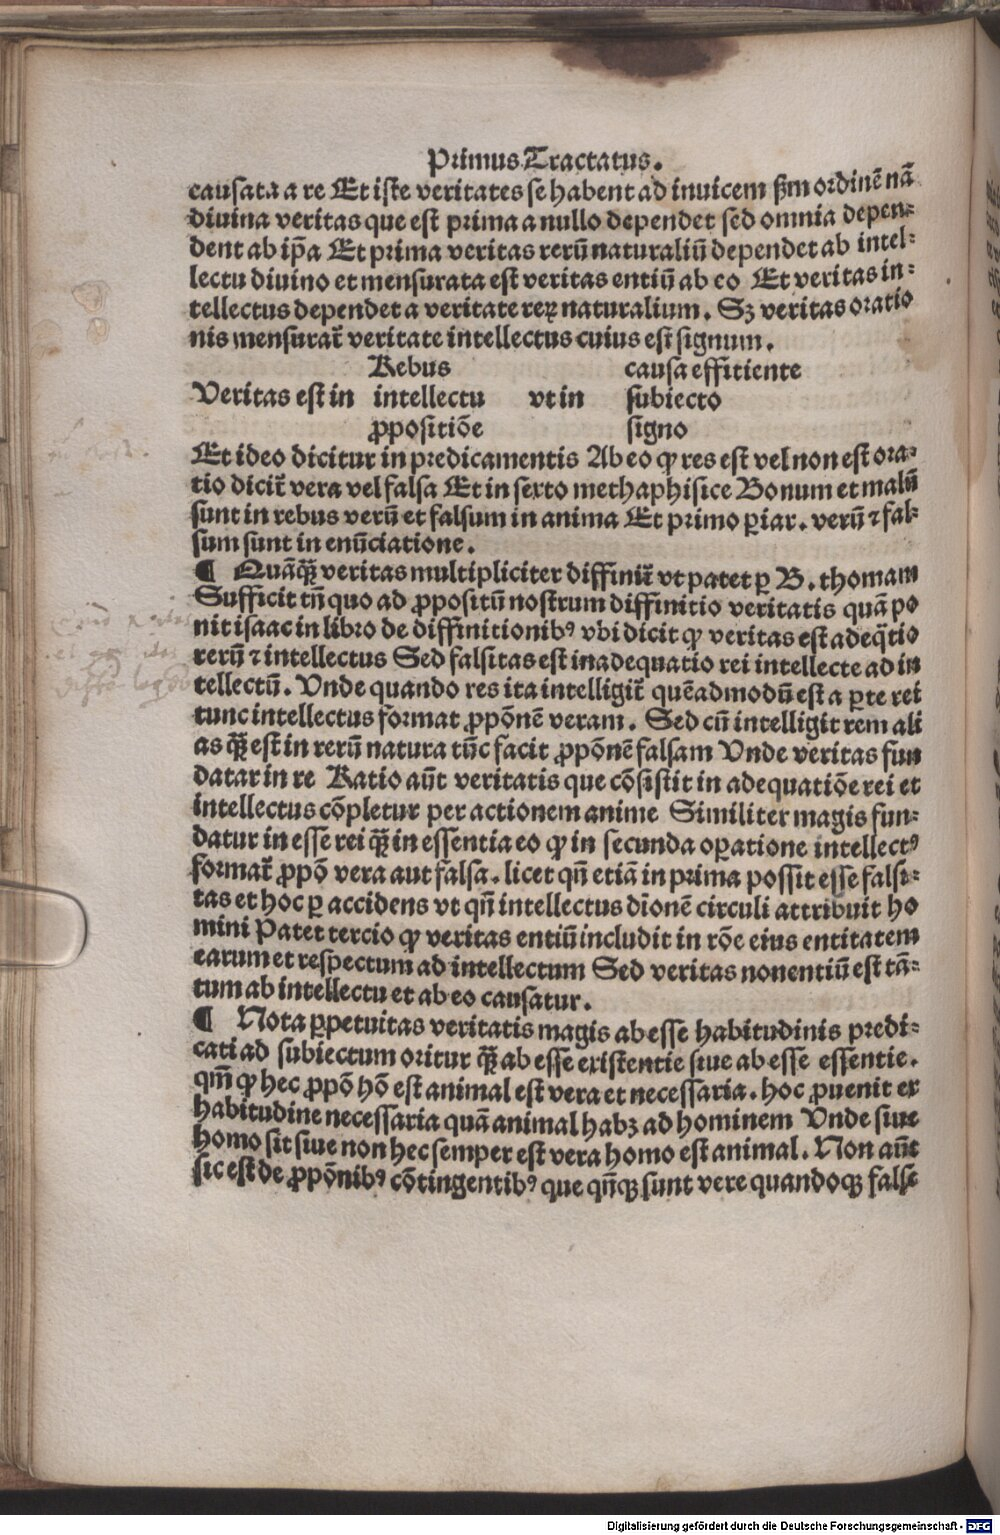 Primus Tractatus.
causata a re Et iste veritates se habent ad inuicem ẞm ordinē nā
diuina veritas que est prima a nullo dependet sed omnia depen⸗
dent ab ip̄a Et prima veritas rerū naturaliū dependet ab intel⸗
lectu diuino et mensurata est veritas entiū ab eo Et veritas in⸗
tellectus dependet a veritate reꝝ naturalium. Sꝫ veritas oratio
nis mensurat̄ veritate intellectus cuius est signum.
Rebus causa effitiente
Veritas est in intellectu vt in subiecto
ꝓpositiōe signo
Et ideo dicitur in predicamentis Ab eo ꝙ res est vel non est ora⸗
tio dicit̄ vera vel falsa Et in sexto methaphisice Bonum et malū
sunt in rebus verū et falsum in anima Et primo ꝑiar. verū ⁊ fal⸗
sum sunt in enūciatione.
¶ Quāqꝫ̄ veritas multipliciter diffinit̄ vt patet ꝑ B. thomam
Sufficit tn̄ quo ad ꝓpositū nostrum diffinitio veritatis quā po
nit isaac in libro de diffinitionibꝰ vbi dicit ꝙ veritas est adeq̄tio
rerū ⁊ intellectus Sed falsitas est inadequatio rei intellecte ad in
tellectū. Vnde quando res ita intelligit̄ quēadmodū est a ꝑte rei
tunc intellectus format ꝓpōnē veram. Sed cū intelligit rem ali
as qꝫ̄ est in rerū natura tūc facit ꝓpōnē falsam Vnde veritas fun
datar in re Ratio aūt veritatis que cōsistit in adequatiōe rei et
intellectus cōpletur per actionem anime Similiter magis fun⸗
datur in esse rei qꝫ̄ in essentia eo ꝙ in secunda oꝑatione intellectꝰ
format̄ ꝓpō vera aut falsa. licet qn̄ etiā in prima possit esse falsi⸗
tas et hoc ꝑ accidens vt qn̄ intellectus dīonē circuli attribuit ho
mini Patet tercio ꝙ veritas entiū includit in rōe eius entitatem
earum et respectum ad intellectum Sed veritas nonentiū est tā⸗
tum ab intellectu et ab eo causatur.
¶ Nota ꝑpetuitas veritatis magis ab esse habitudinis predi⸗
cati ad subiectum oritur qꝫ̄ ab esse existentie siue ab esse essentie.
qm̄ ꝙ hec ꝓpō hō est animal est vera et necessaria. hoc ꝓuenit ex
habitudine necessaria quā animal habꝫ ad hominem Vnde siue
homo sit siue non hec semper est vera homo est animal. Non aūt
sic est de ꝓpōnibꝰ cōtingentibꝰ que qn̄qꝫ sunt vere quandoqꝫ false
Digitalisierung gefördert durch die Deutsche Forschungsgemeinschaft - DFG